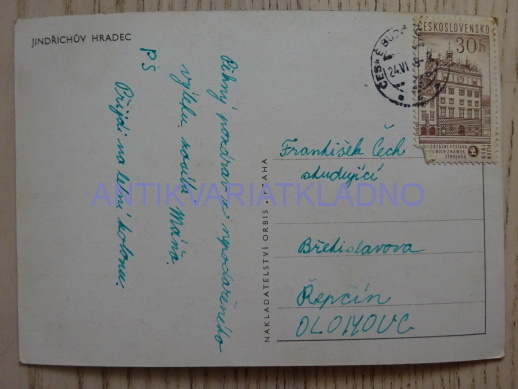 JINDŘICHŮV HRADEC
Pěkný pozdrav z nepodařeného
výletu, zasílá Máňa.
PŠ
Přijdi na letní kolonu.
NAKLADATELSTVÍ ORBIS · PRAHA
ČESKOSLOVENSKO
30h
24.VI
František Čech
studující
Břetislavova
Řepčín
OLOMOUC
ANTIKVARIATKLADNO